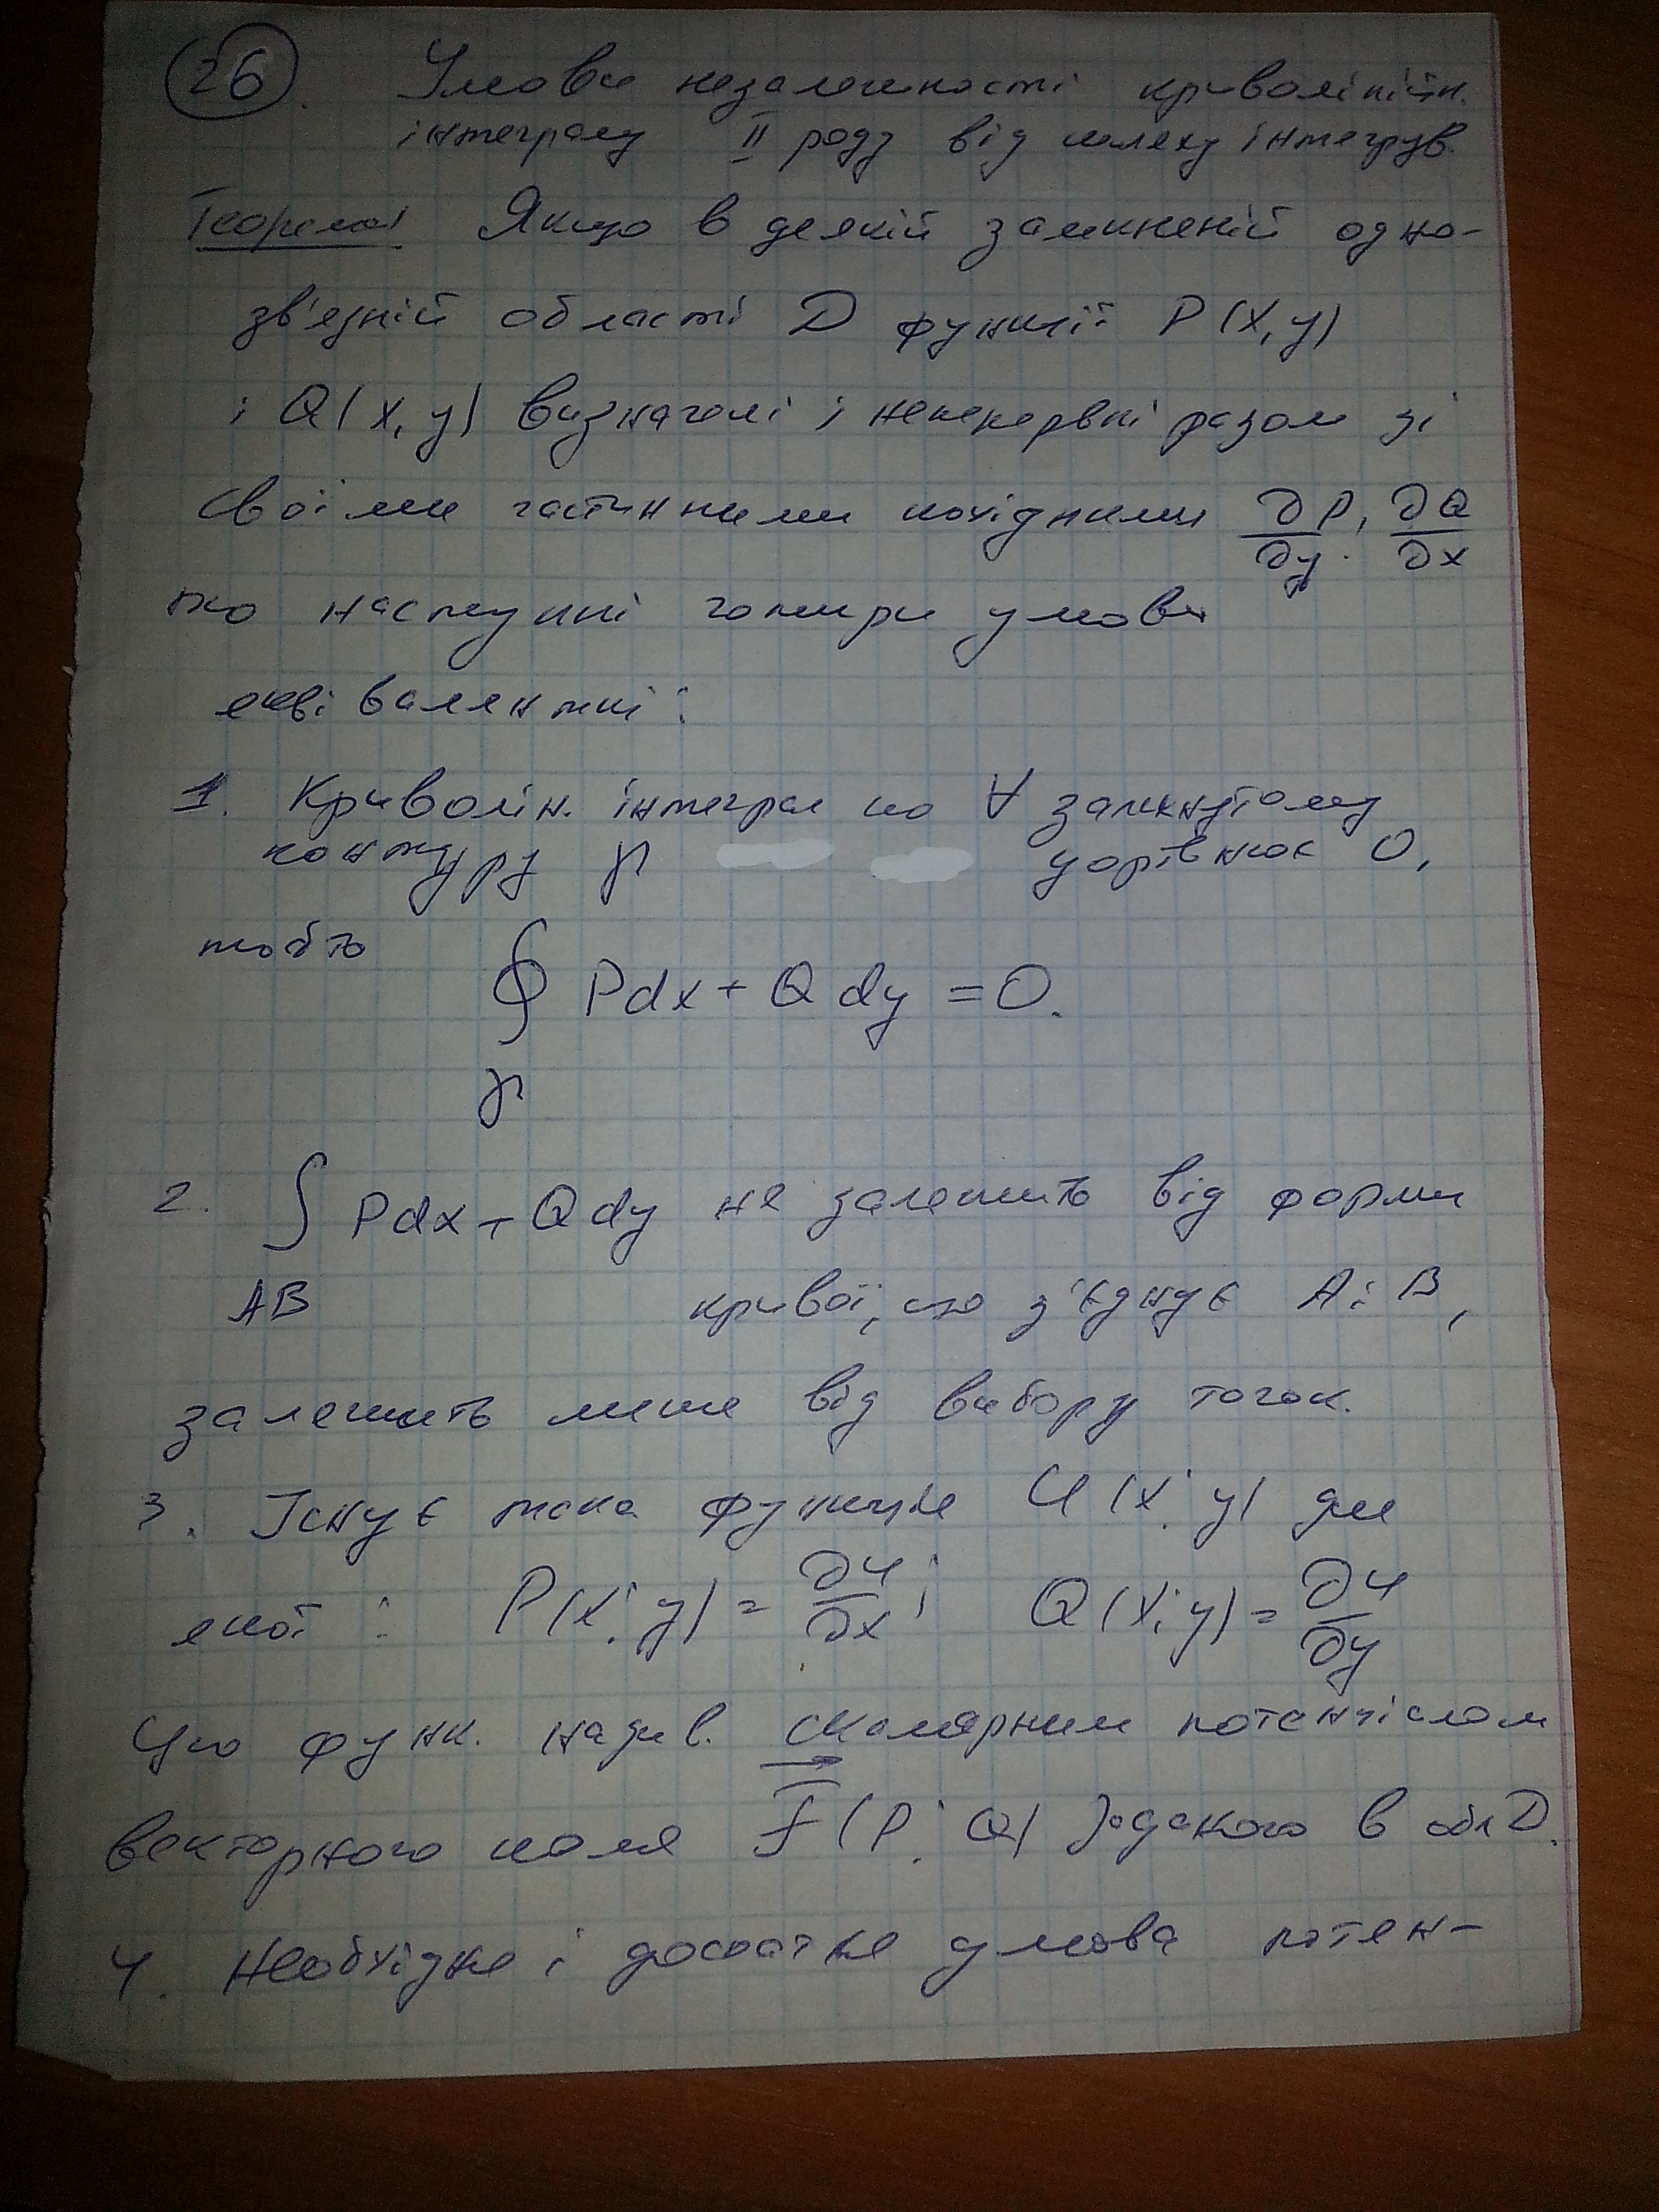 26. Умови незалежності криволінійн.
інтегралу II роду від шляху інтегрув.
Теорема! Якщо в деякій замкненій одно-
зв'язній області D функції P(x,y)
і Q(x,y) визначені і неперервні разом зі
своїми частинними похідними ∂P/∂y, ∂Q/∂x
то наступні чотири умови
еквівалентні:
1. Криволін. інтеграл по ∀ замкнутому
контуру γ дорівнює 0,
тобто
∮ Pdx + Qdy = 0.
γ
2. ∫ Pdx + Qdy не залежить від форми
AB кривої, що з'єднує A і B,
залежить лише від вибору точок.
3. Існує така функція U(x; y) для
якої: P(x; y) = ∂u/∂x; Q(x; y) = ∂u/∂y
Цю функ. назив. скалярним потенціалом
векторного поля F(P; Q) заданого в обл D.
4. Необхідна і достатня умова потен-